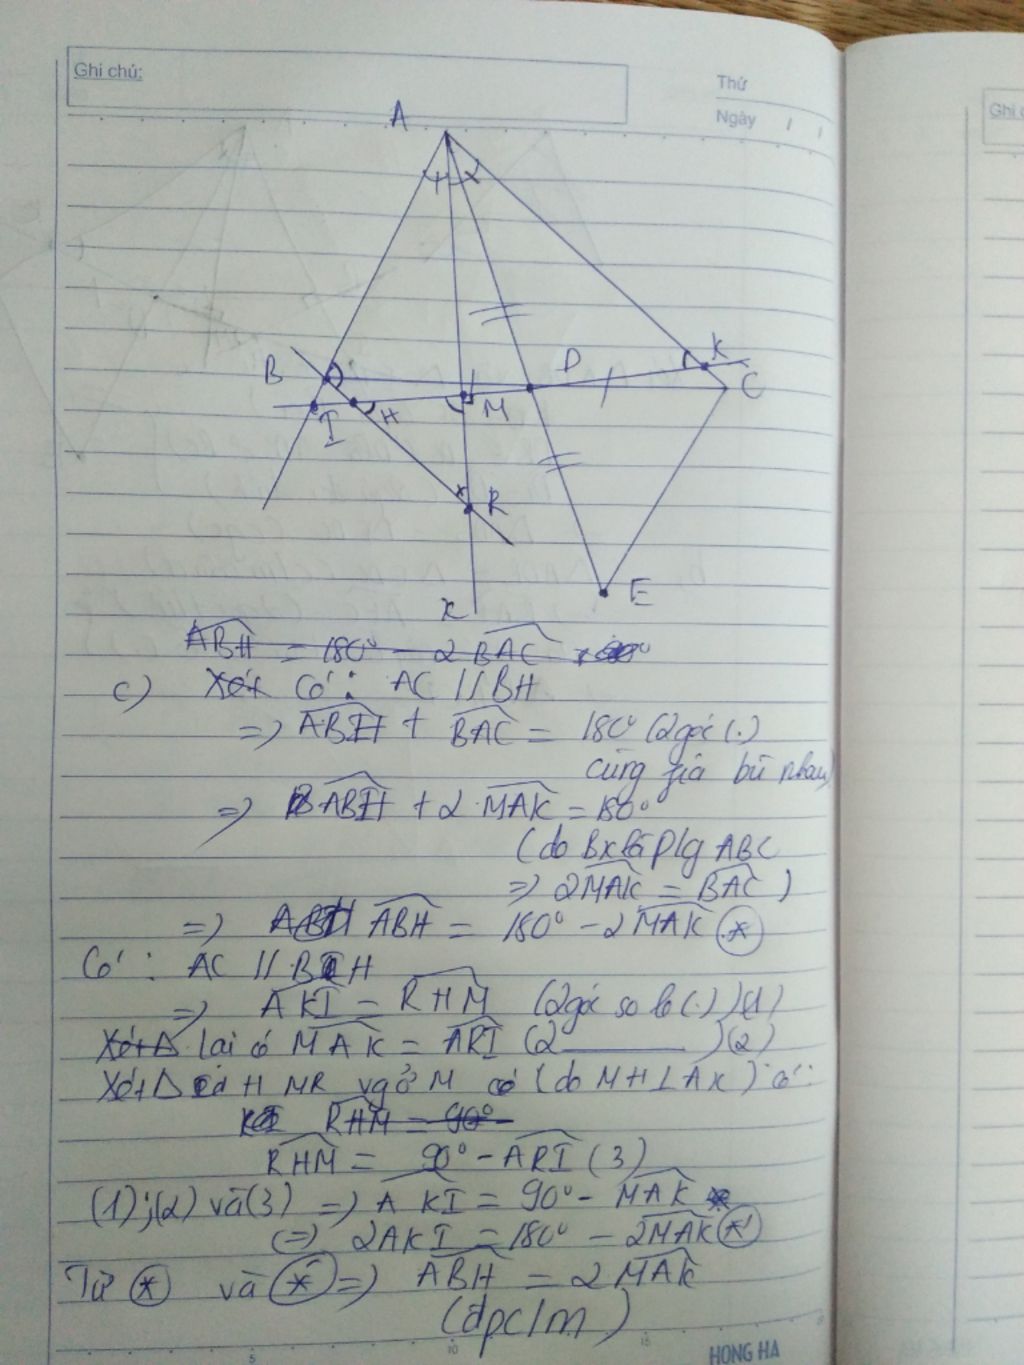 Ghi chú:
Thứ
Ngày / /
Ghi c
A
1 2
B
D
K
C
I
H
M
R
E
x
ABH = 180° - 2 BAC
c) Xét Có: AC // BH
=> ABH + BAC = 180° (2 góc (.)
cùng fía bù nhau)
=> ABH + 2 MAK = 180°
(do Bx là p/g ABC
=> 2MAK = BAC )
=> ABH = 180° - 2 MAK *
Có: AC // BH
=> AKI = RHM (2 góc so le (.) )(1)
Xét Δ lại có MAK = ARI (2 ——— )(2)
Xét Δ HMR vg ở M có (do MH ⊥ Ax) có:
RHM = 90°
RHM = 90° - ARI (3)
(1);(2) và (3) => AKI = 90° - MAK
(=) 2AKI = 180° - 2MAK *'
Từ * và *' => ABH = 2 MAK
(đpc/m)
5
10
15
HONG HA